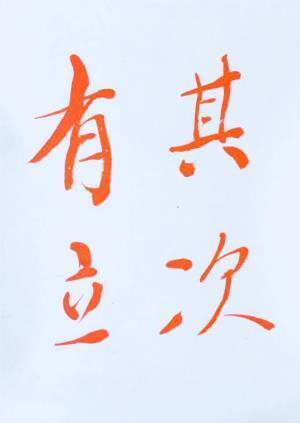 其次
有立